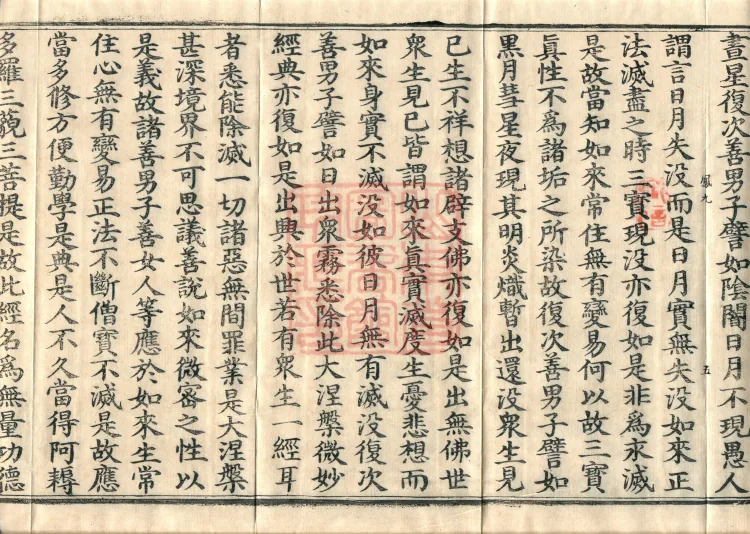 晝星復次善男子譬如陰闇日月不現愚人
謂言日月失没而是日月實無失没如來正
法滅盡之時三寶現没亦復如是非爲永滅
是故當知如來常住無有變易何以故三寶
眞性不爲諸垢之所染故復次善男子譬如
黑月彗星夜現其明炎熾暫出還没衆生見
已生不祥想諸辟支佛亦復如是出無佛世
衆生見已皆謂如來眞實滅度生憂悲想而
如來身實不滅没如彼日月無有滅没復次
善男子譬如日出衆霧悉除此大涅槃微妙
經典亦復如是出興於世若有衆生一經耳
者悉能除滅一切諸惡無間罪業是大涅槃
甚深境界不可思議善說如來微密之性以
是義故諸善男子善女人等應於如來生常
住心無有變易正法不斷僧寶不滅是故應
當多修方便勤學是典是人不久當得阿耨
多羅三藐三菩提是故此經名爲無量功德
鳳九
五